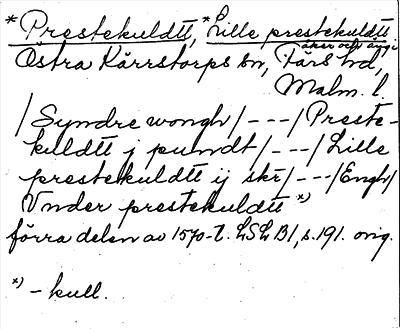 *Prestekuldtt, *Lille prestekuldtt
åker och äng i
Östra Kärrstorps sn, Färs hd,
Malm. l.
/Syndre wongh/---/Preste-
kuldtt j pundt/---/Lille
prestekuldtt ij skr/---/Engh/
Vnder prestekuldtt *)
förra delen av 1570-t. LSLB1, s.191. orig.
*) -kull.